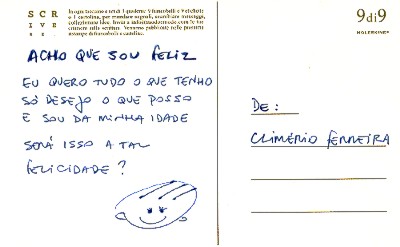 SCR
IVE
9di9
MOLESKINE®
ACHO QUE SOU FELIZ
EU QUERO TUDO O QUE TENHO
SÓ DESEJO O QUE POSSO
E SOU DA MINHA IDADE
SERÁ ISSO A TAL
FELICIDADE?
DE:
CLIMÉRIO FERREIRA